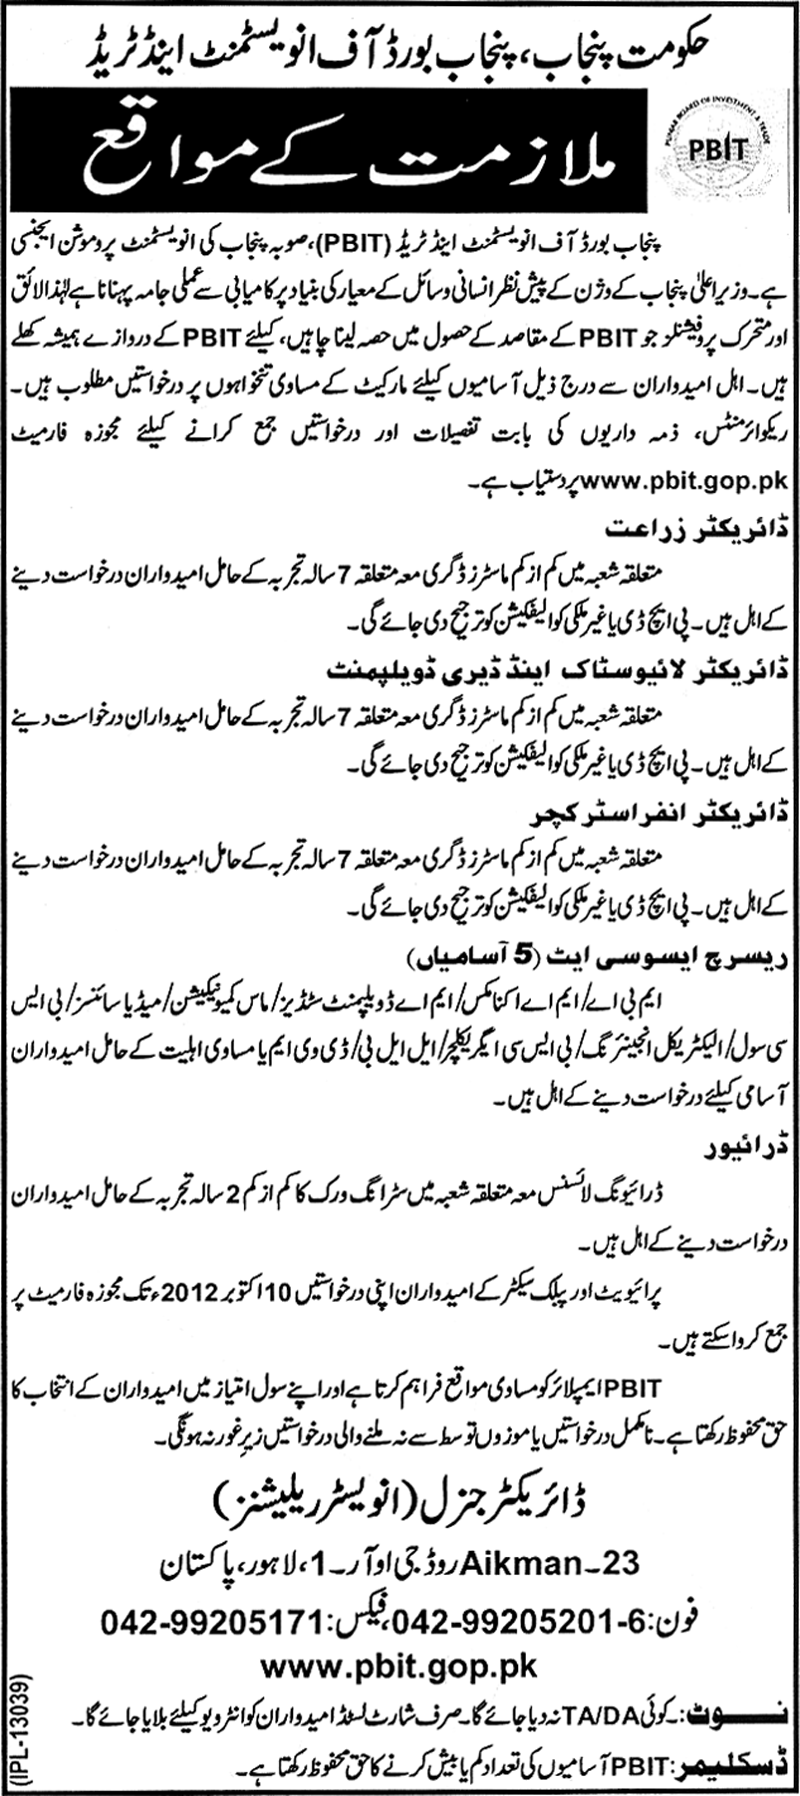 حکومت پنجاب، پنجاب بورڈ آف انویسٹمنٹ اینڈ ٹریڈ
ملازمت کے مواقع
PUNJAB BOARD OF INVESTMENT & TRADE
PBIT
پنجاب بورڈ آف انویسٹمنٹ اینڈ ٹریڈ (PBIT)، صوبہ پنجاب کی انویسٹمنٹ پروموشن ایجنسی
ہے۔ وزیراعلیٰ پنجاب کے وژن کے پیش نظر انسانی وسائل کے معیار کی بنیاد پر کامیابی سے عملی جامہ پہنانا ہے لہٰذا لائق
اور متحرک پروفیشنلز جو PBIT کے مقاصد کے حصول میں حصہ لینا چاہیں، کیلئے PBIT کے دروازے ہمیشہ کھلے
ہیں۔ اہل امیدواران سے درج ذیل آسامیوں کیلئے مارکیٹ کے مساوی تنخواہوں پر درخواستیں مطلوب ہیں۔
ریکوائرمنٹس، ذمہ داریوں کی بابت تفصیلات اور درخواستیں جمع کرانے کیلئے مجوزہ فارمیٹ
www.pbit.gop.pk پر دستیاب ہے۔
ڈائریکٹر زراعت
متعلقہ شعبہ میں کم از کم ماسٹرز ڈگری معہ متعلقہ 7 سالہ تجربہ کے حامل امیدواران درخواست دینے
کے اہل ہیں۔ پی ایچ ڈی یا غیر ملکی کوالیفکیشن کو ترجیح دی جائے گی۔
ڈائریکٹر لائیوسٹاک اینڈ ڈیری ڈویلپمنٹ
متعلقہ شعبہ میں کم از کم ماسٹرز ڈگری معہ متعلقہ 7 سالہ تجربہ کے حامل امیدواران درخواست دینے
کے اہل ہیں۔ پی ایچ ڈی یا غیر ملکی کوالیفکیشن کو ترجیح دی جائے گی۔
ڈائریکٹر انفراسٹرکچر
متعلقہ شعبہ میں کم از کم ماسٹرز ڈگری معہ متعلقہ 7 سالہ تجربہ کے حامل امیدواران درخواست دینے
کے اہل ہیں۔ پی ایچ ڈی یا غیر ملکی کوالیفکیشن کو ترجیح دی جائے گی۔
ریسرچ ایسوسی ایٹ (5 آسامیاں)
ایم بی اے/ایم اے اکنامکس/ایم اے ڈویلپمنٹ سٹڈیز/ماس کمیونیکیشن/میڈیا سائنسز/بی ایس
سی سول/الیکٹریکل انجینئرنگ/بی ایس سی ایگریکلچر/ایل ایل بی/ڈی وی ایم یا مساوی اہلیت کے حامل امیدواران
آسامی کیلئے درخواست دینے کے اہل ہیں۔
ڈرائیور
ڈرائیونگ لائسنس معہ متعلقہ شعبہ میں سٹرانگ ورک کا کم از کم 2 سالہ تجربہ کے حامل امیدواران
درخواست دینے کے اہل ہیں۔
پرائیویٹ اور پبلک سیکٹر کے امیدواران اپنی درخواستیں 10 اکتوبر 2012ء تک مجوزہ فارمیٹ پر
جمع کروا سکتے ہیں۔
PBIT ایمپلائر کو مساوی مواقع فراہم کرتا ہے اور اپنے سول امتیاز میں امیدواران کے انتخاب کا
حق محفوظ رکھتا ہے۔ نامکمل درخواستیں یا موزوں توسط سے نہ ملنے والی درخواستیں زیر غور نہ ہونگی۔
ڈائریکٹر جنرل (انویسٹر ریلیشنز)
23۔Aikman روڈ جی او آر۔1، لاہور، پاکستان
فون: 042-99205201-6، فیکس: 042-99205171
www.pbit.gop.pk
نوٹ:۔ کوئی TA/DA نہ دیا جائے گا۔ صرف شارٹ لسٹڈ امیدواران کو انٹرویو کیلئے بلایا جائے گا۔
ڈسکلیمر: PBIT آسامیوں کی تعداد کم یا بیش کرنے کا حق محفوظ رکھتا ہے۔
(IPL-13039)